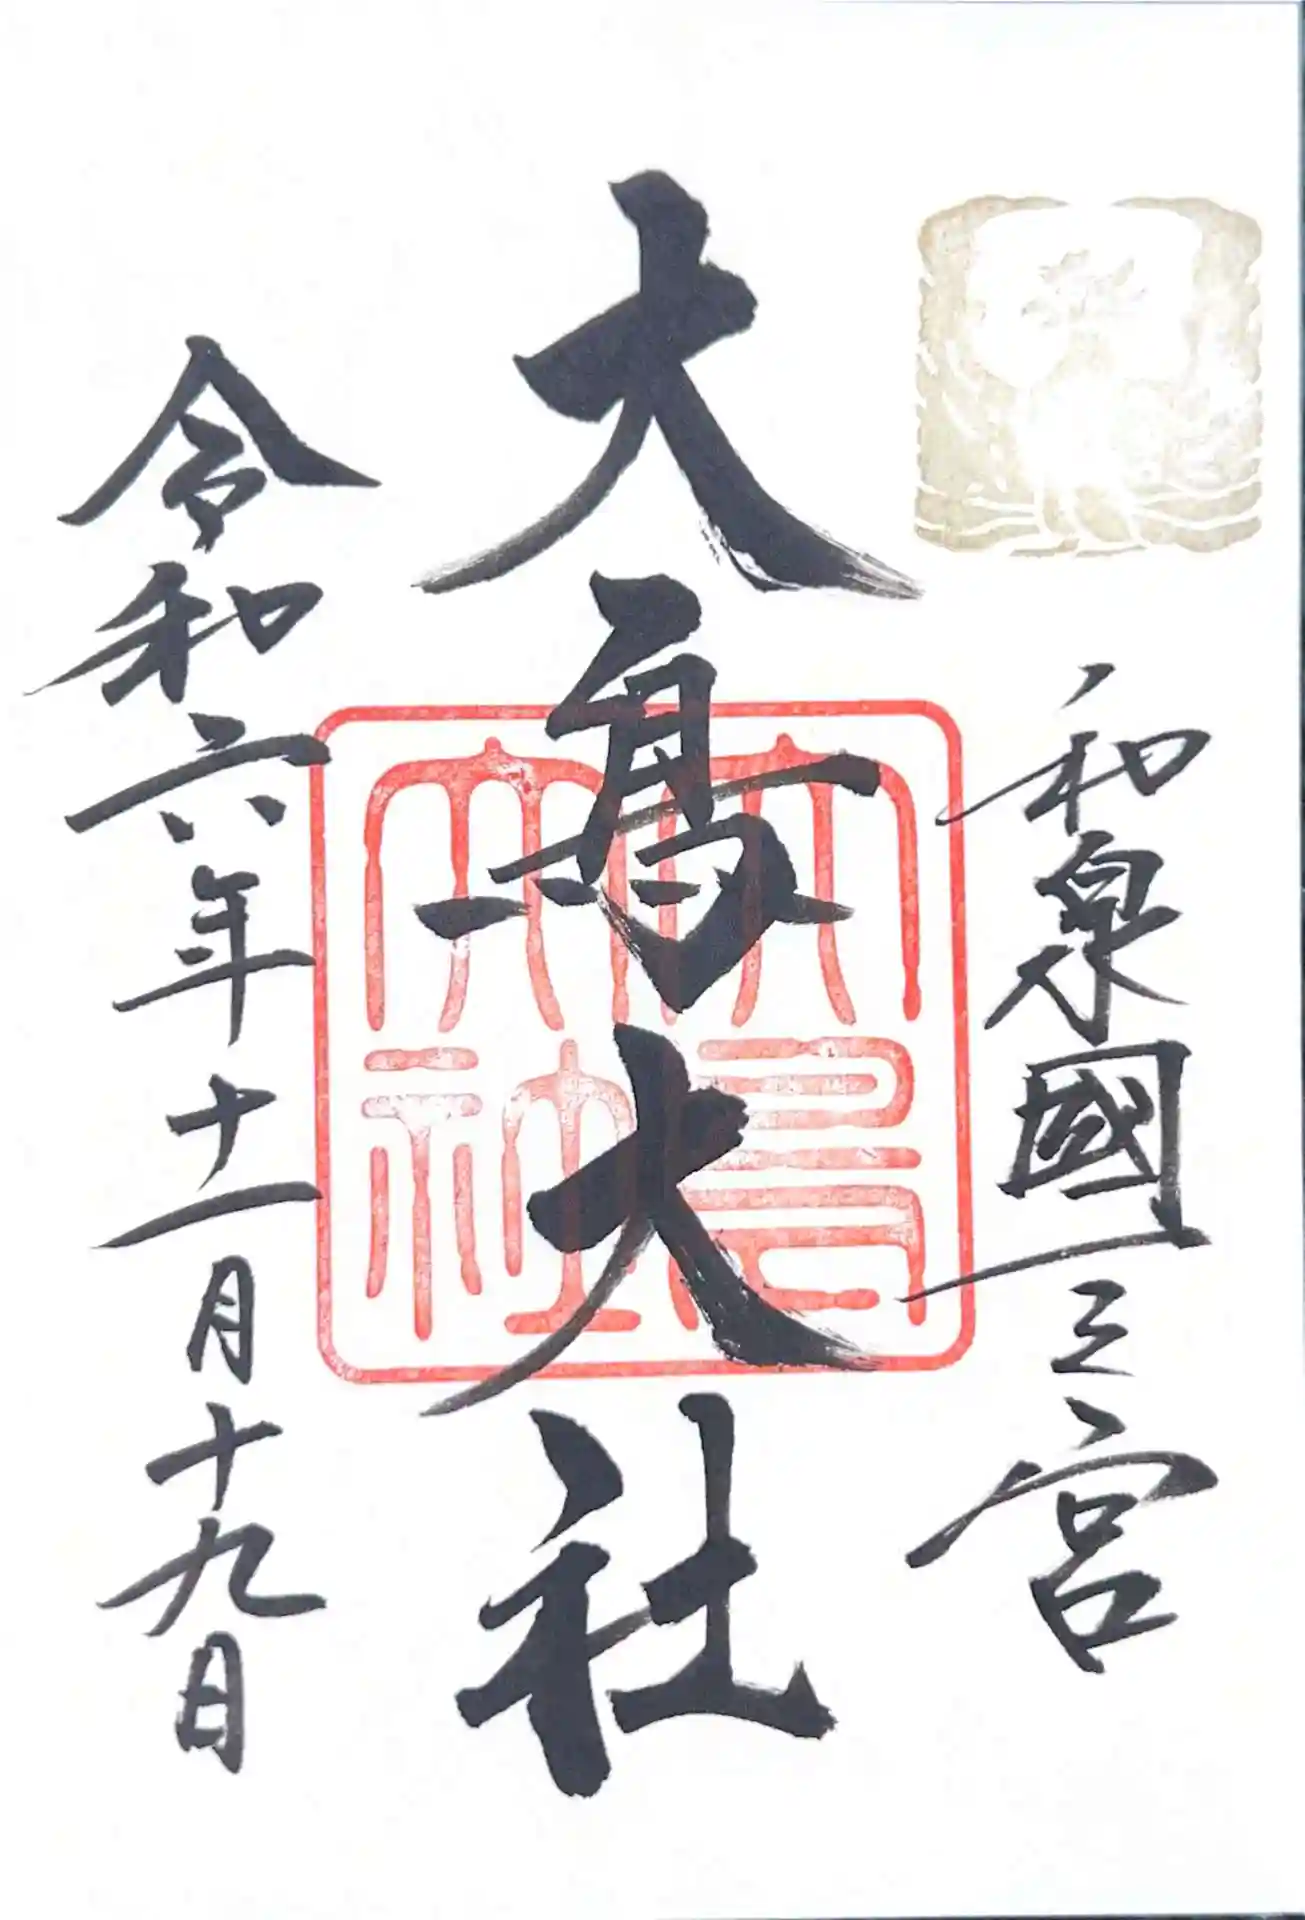 和泉國一之宮
大鳥大社
大鳥
大社
令和六年十一月十九日